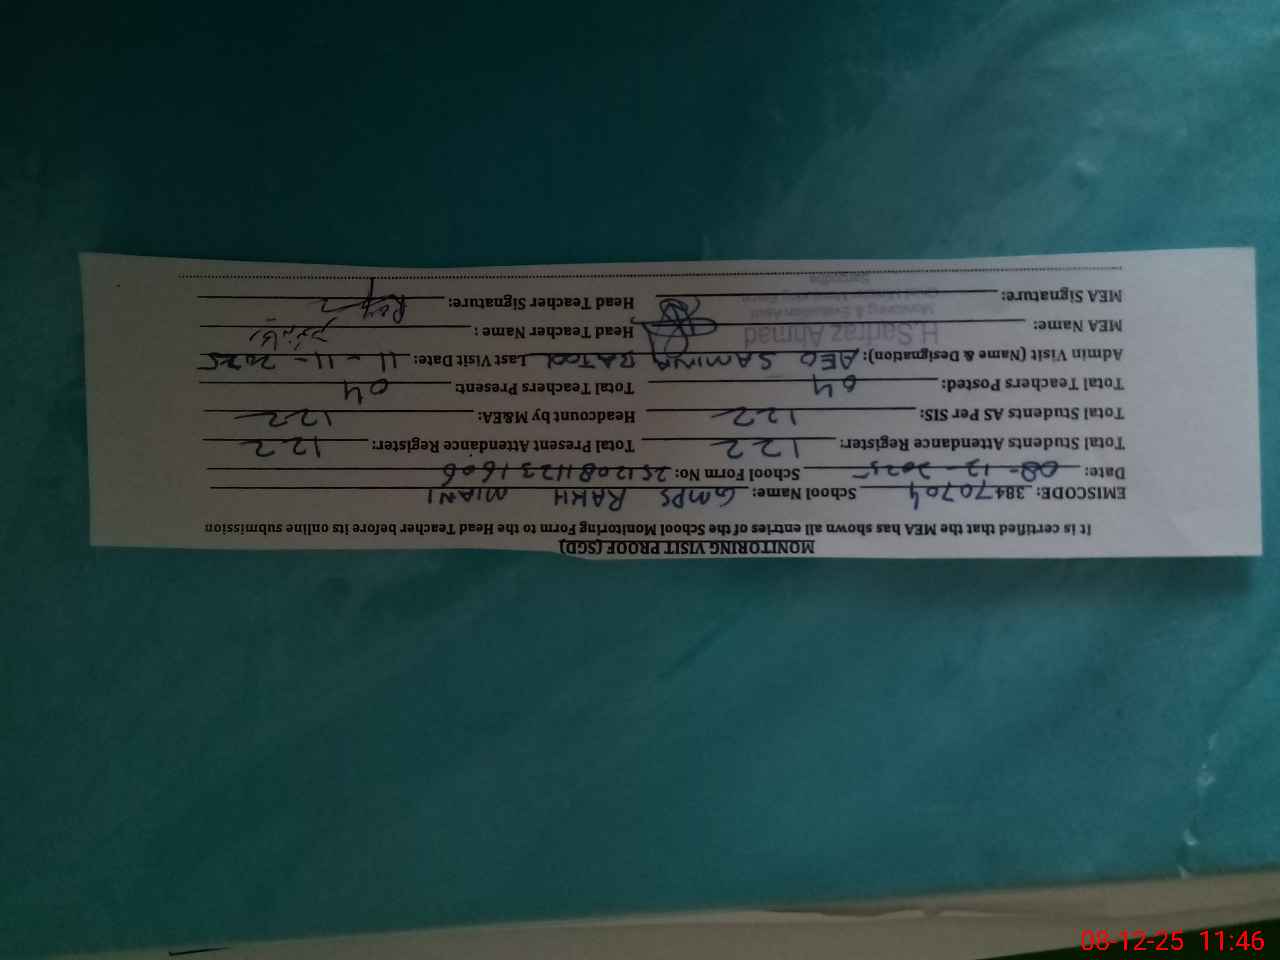 MONITORING VISIT PROOF (SGD)
It is certified that the MEA has shown all entries of the School Monitoring Form to the Head Teacher before its online submission
EMISCODE: 38470704 School Name: GMPS RAKH MIANI
Date: 08-12-2025 School Form No: 2512081123 1606
Total Students Attendance Register: 122 Total Present Attendance Register: 122
Total Students AS Per SIS: 122 Headcount by M&EA: 122
Total Teachers Posted: 04 Total Teachers Present: 04
Admin Visit (Name & Designation): AEO SAMINA BATOOL Last Visit Date: 11-11-2025
MEA Name: H.Sarfraz Ahmad Head Teacher Name:
Monitoring & Evaluation Assit
MEA Signature: Head Teacher Signature:
Sargodha
08-12-25 11:46